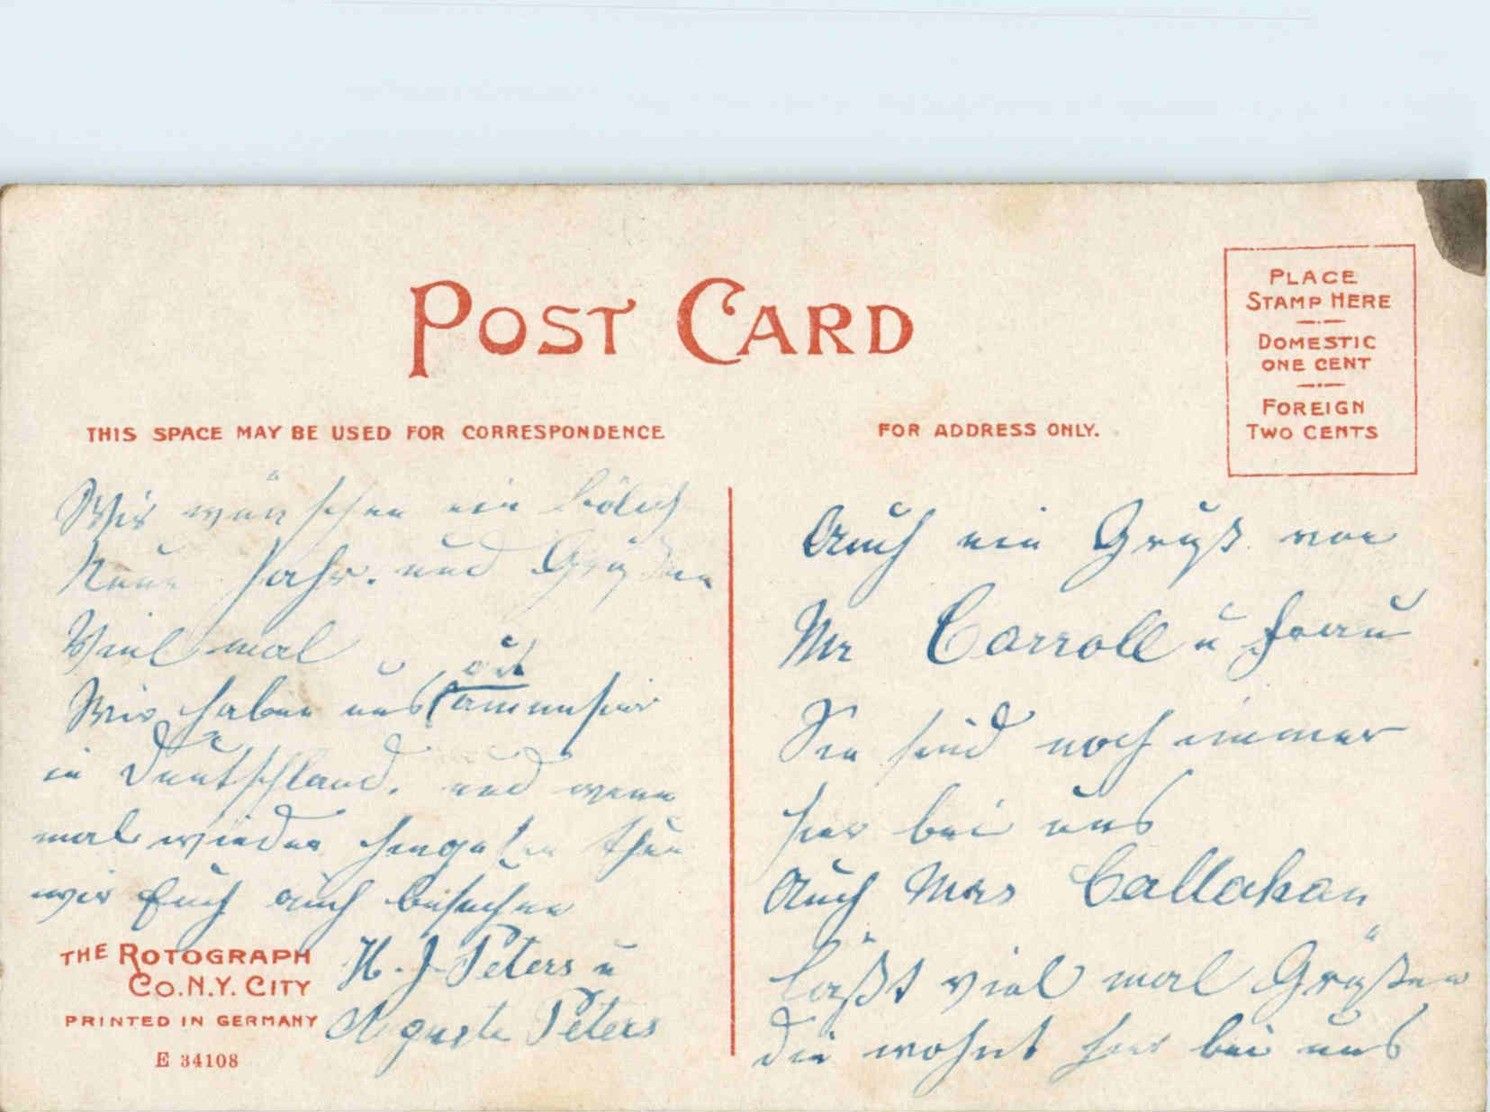 POST CARD
PLACE
STAMP HERE
DOMESTIC
ONE CENT
FOREIGN
TWO CENTS
THIS SPACE MAY BE USED FOR CORRESPONDENCE
FOR ADDRESS ONLY.
Wir wünschen ein
Neues Jahr. und Grüßen
Viel mal
Wir haben uns
in Deutschland. und wenn
mal wieder hingehen thun
wir Euch auch besuchen
H. J. Peters u
Auguste Peters
THE ROTOGRAPH
CO. N.Y. CITY
PRINTED IN GERMANY
E 34108
Auch ein Gruß von
Mr Carroll u Frau
Sie sind noch immer
hier bei uns
Auch Mrs Callahan
läßt viel mal Grüßen
die wohnt hier bei uns